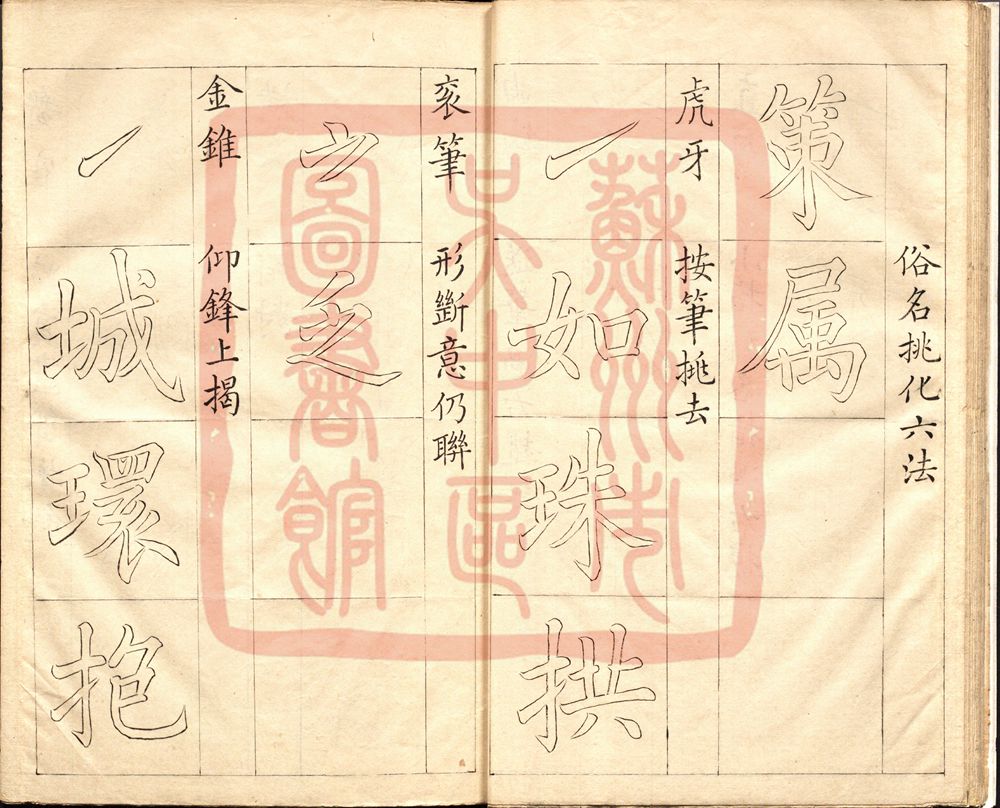 俗名挑化六法
策属
虎牙 按筆挑去
㇀如珠拱
衮筆 形斷意仍聯
之
金錐 仰鋒上揭
㇀城環抱
蘇州市
吳中區
圖書館